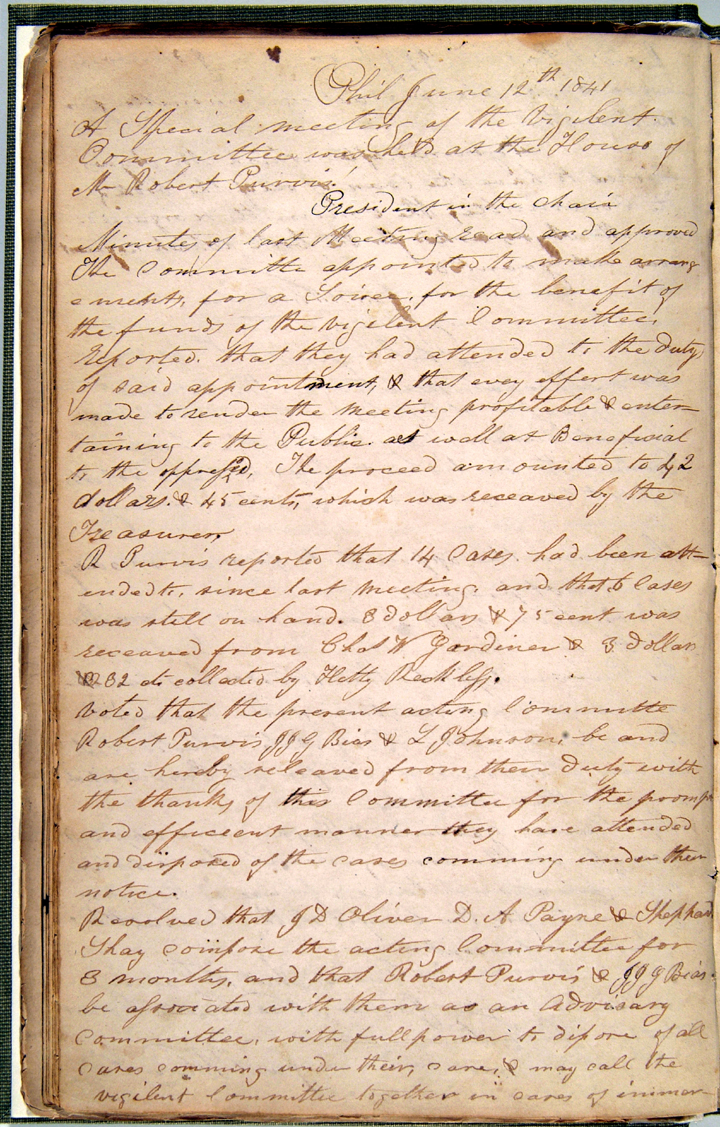 Phil June 12th 1841
A Special meeting of the Vigilent
Committee was held at the House of
Mr Robert Purvis.
President in the chair
Minutes of last Meeting read and approved
The Committe appointed to make arrang
ements, for a Soiree, for the benefit of
the funds of the vigilent Committee,
Reported. that they had attended to the duty
of said appointment, & that evey effort was
made to render the meeting profitable & enter-
taining to the Public as well as Beneficial
to the oppressed, The proceed amounted to 42
dollars. & 45 cents, which was receaved by the
Treasurer.
R Purvis reported that 14 Cases had been att-
ended to, since last meeting and that 6 Cases
was still on hand. 8 dollars & 75 cent was
receaved from Chas W Gardiner & 3 dollars
& 32 cts collected by Hetty Reckless.
Voted that the present acting Committe
Robert Purvis, JJG Bias & L Johnson, be and
are hereby releaved from their Duty with
the thanks of this Committee for the prompt
and efficeent manner they have attended
and disposed of the cases comming under their
notice.
Resolved that J D Oliver D. A Payne & Shephard
Shay compose the acting Committee for
3 months, and that Robert Purvis & JJG Bias.
be associated with them as an Advisary
Committee, with full power to dispose of all
cases comming under their, care, & may call the
vigilent Committee together in cases of